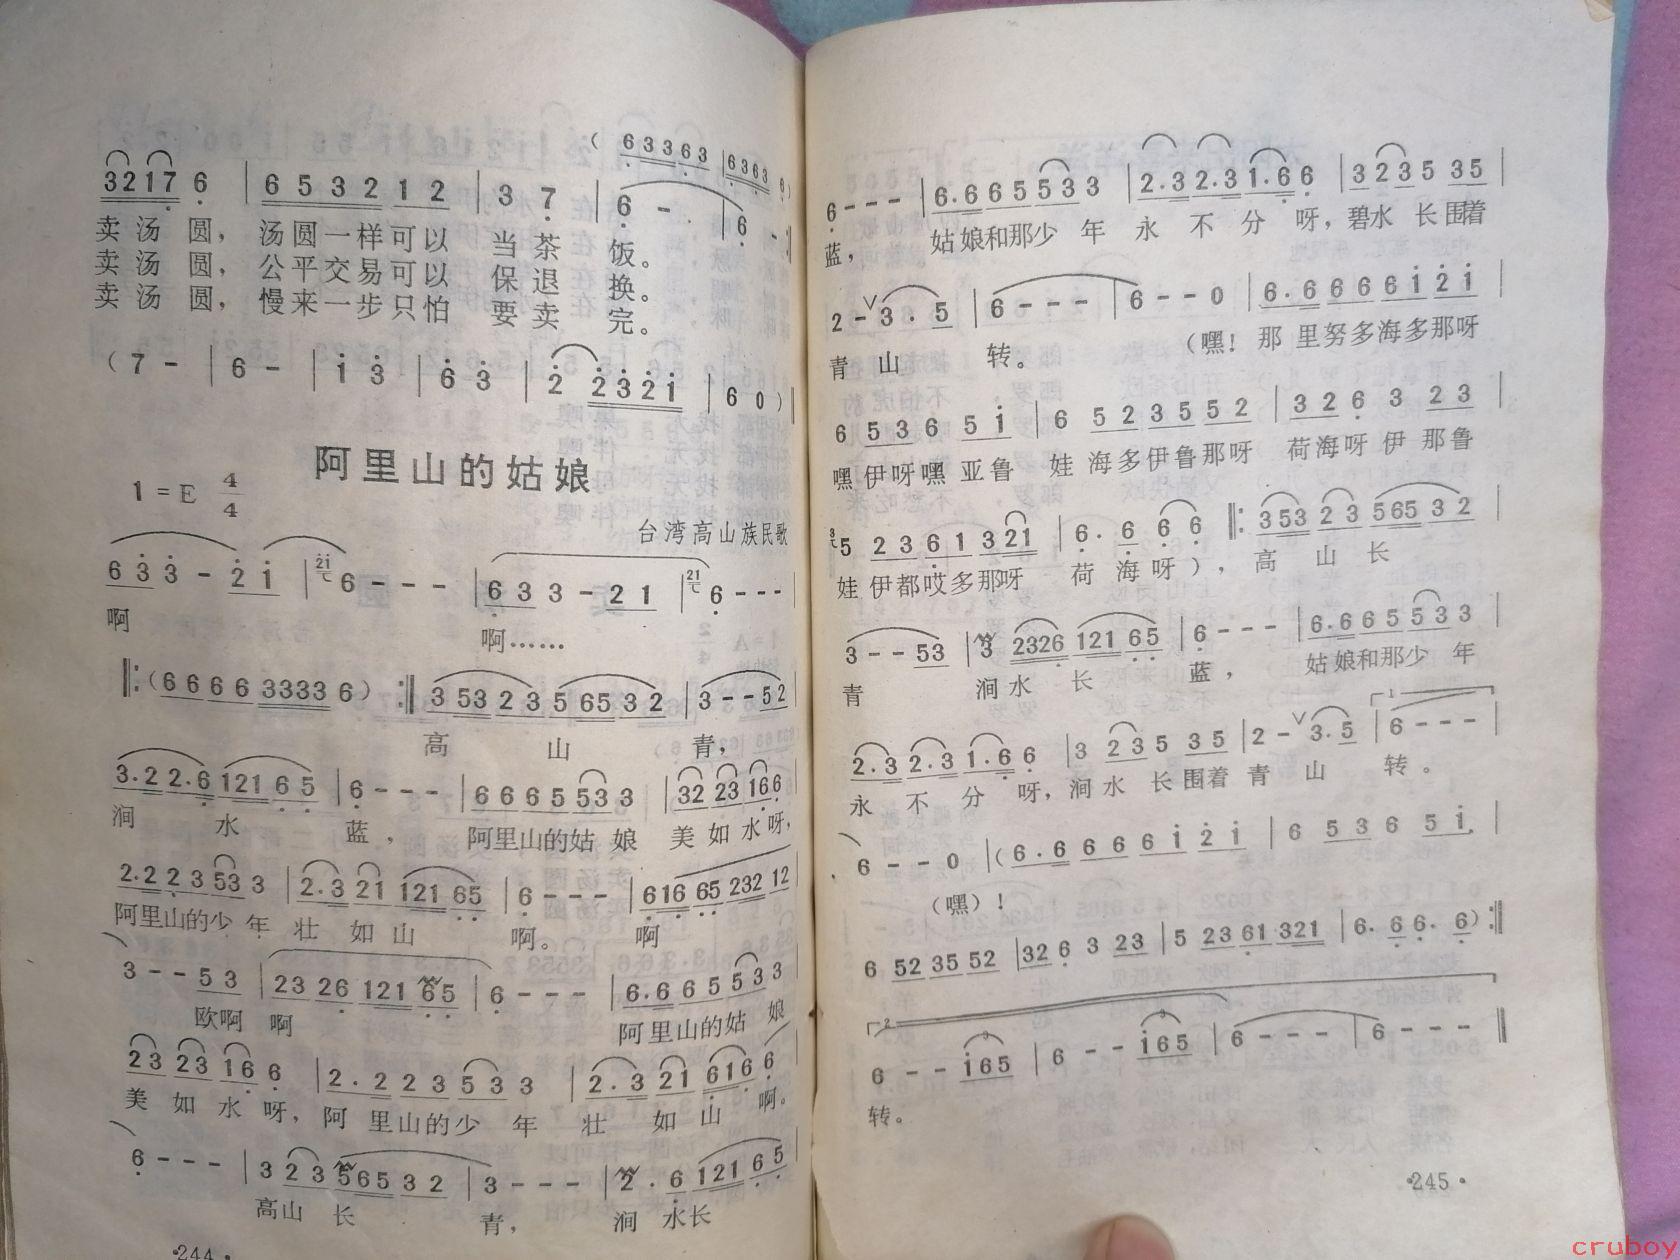 ( 6 3 3 6 3 6 3 6 3 6 )
3 2 1 7 6 | 6 5 3 2 1 2 | 3 7 | 6 - | 6 - :|
卖汤圆，汤圆一样可以当茶饭。
卖汤圆，公平交易可以保退换。
卖汤圆，慢来一步只怕要卖完。
( 7 - | 6 - | i 3 | 6 3 | 2 2 3 2 i | 6 0 ) ‖
阿里山的姑娘
1=E 4/4
台湾高山族民歌
6 3 3 - 2 i | 2i 6 - - - | 6 3 3 - 2 1 | 21 6 - - -
啊 啊……
‖: ( 6 6 6 6 3 3 3 3 6 ) :‖ 3 5 3 2 3 5 6 5 3 2 | 3 - - 5 2
高山青，
3 . 2 2 . 6 1 2 1 6 5 | 6 - - - | 6 6 6 5 5 5 3 3 | 3 2 2 3 1 6 6
涧水蓝，阿里山的姑娘美如水呀，
2 . 2 2 3 5 3 3 | 2 . 3 2 1 1 2 1 6 5 | 6 - - - | 6 1 6 6 5 2 3 2 1 2
阿里山的少年壮如山啊。啊
3 - - 5 3 | 2 3 2 6 1 2 1 6 5 | 6 - - - | 6 . 6 6 5 5 5 3 3
欧啊啊 阿里山的姑娘
2 3 2 3 1 6 6 | 2 . 2 2 3 5 3 3 | 2 . 3 2 1 6 1 6 6
美如水呀，阿里山的少年壮如山啊。
6 - - - | 3 2 3 5 6 5 3 2 | 3 - - - | 2 . 6 1 2 1 6 5
高山长青，涧水长
·244·
6 - - - | 6 . 6 6 5 5 3 3 | 2 . 3 2 . 3 1 . 6 6 | 3 2 3 5 3 5 |
蓝，姑娘和那少年永不分呀，碧水长围着
2 - ∨ 3 . 5 | 6 - - - | 6 - - 0 | 6 . 6 6 6 6 i 2 i |
青山转。（嘿！那里努多海多那呀
6 5 3 6 5 i | 6 5 2 3 5 5 2 | 3 2 6 3 2 3 |
嘿伊呀嘿亚鲁娃海多伊鲁那呀荷海呀伊那鲁
3 5 2 3 6 1 3 2 1 | 6 . 6 6 6 ‖: 3 5 3 2 3 5 6 5 3 2 |
娃伊都哎多那呀荷海呀），高山长
3 - - 5 3 | 3 2 3 2 6 1 2 1 6 5 | 6 - - - | 6 . 6 6 5 5 3 3
青 涧水长蓝，姑娘和那少年
2 . 3 2 . 3 1 . 6 6 | 3 2 3 5 3 5 | 2 - ∨ 3 . 5 | 1 6 - - - |
永不分呀，涧水长围着青山转。
6 - - 0 | ( 6 . 6 6 6 6 i 2 i | 6 5 3 6 5 i |
（嘿）！
6 5 2 3 5 5 2 | 3 2 6 3 2 3 | 5 2 3 6 1 3 2 1 | 6 . 6 6 . 6 ) :‖
2 6 - - i 6 5 | 6 - - i 6 5 | 6 - - - | 6 - - - ‖
转。
·245·
cruboy